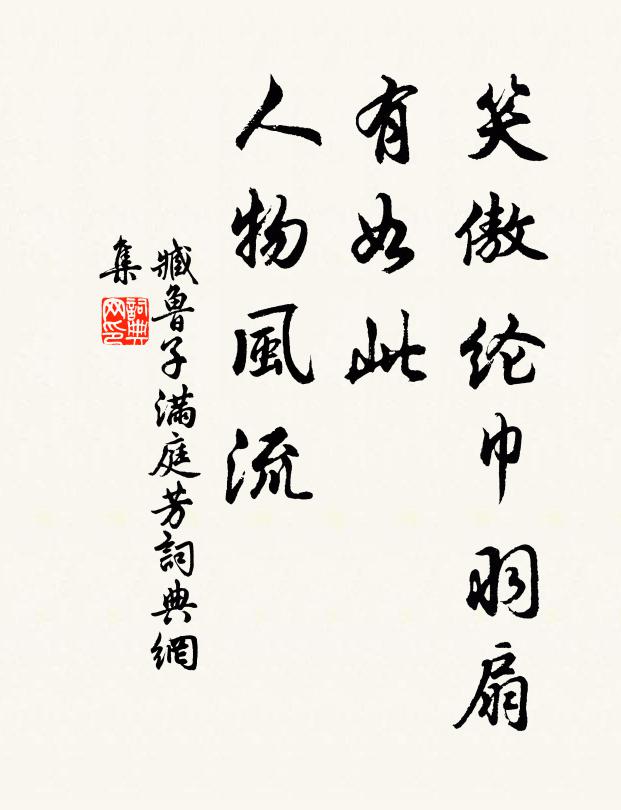 笑傲纶巾羽扇
有如此
人物風流
臧魯子滿庭芳詞典網
集
詞典
网印